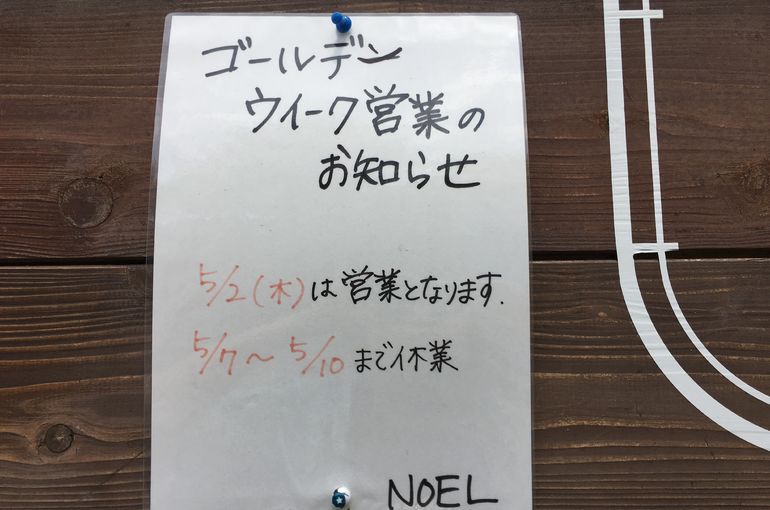 ゴールデン
ウイーク営業の
お知らせ
5/2(木)は営業となります.
5/7〜5/10まで休業
NOEL